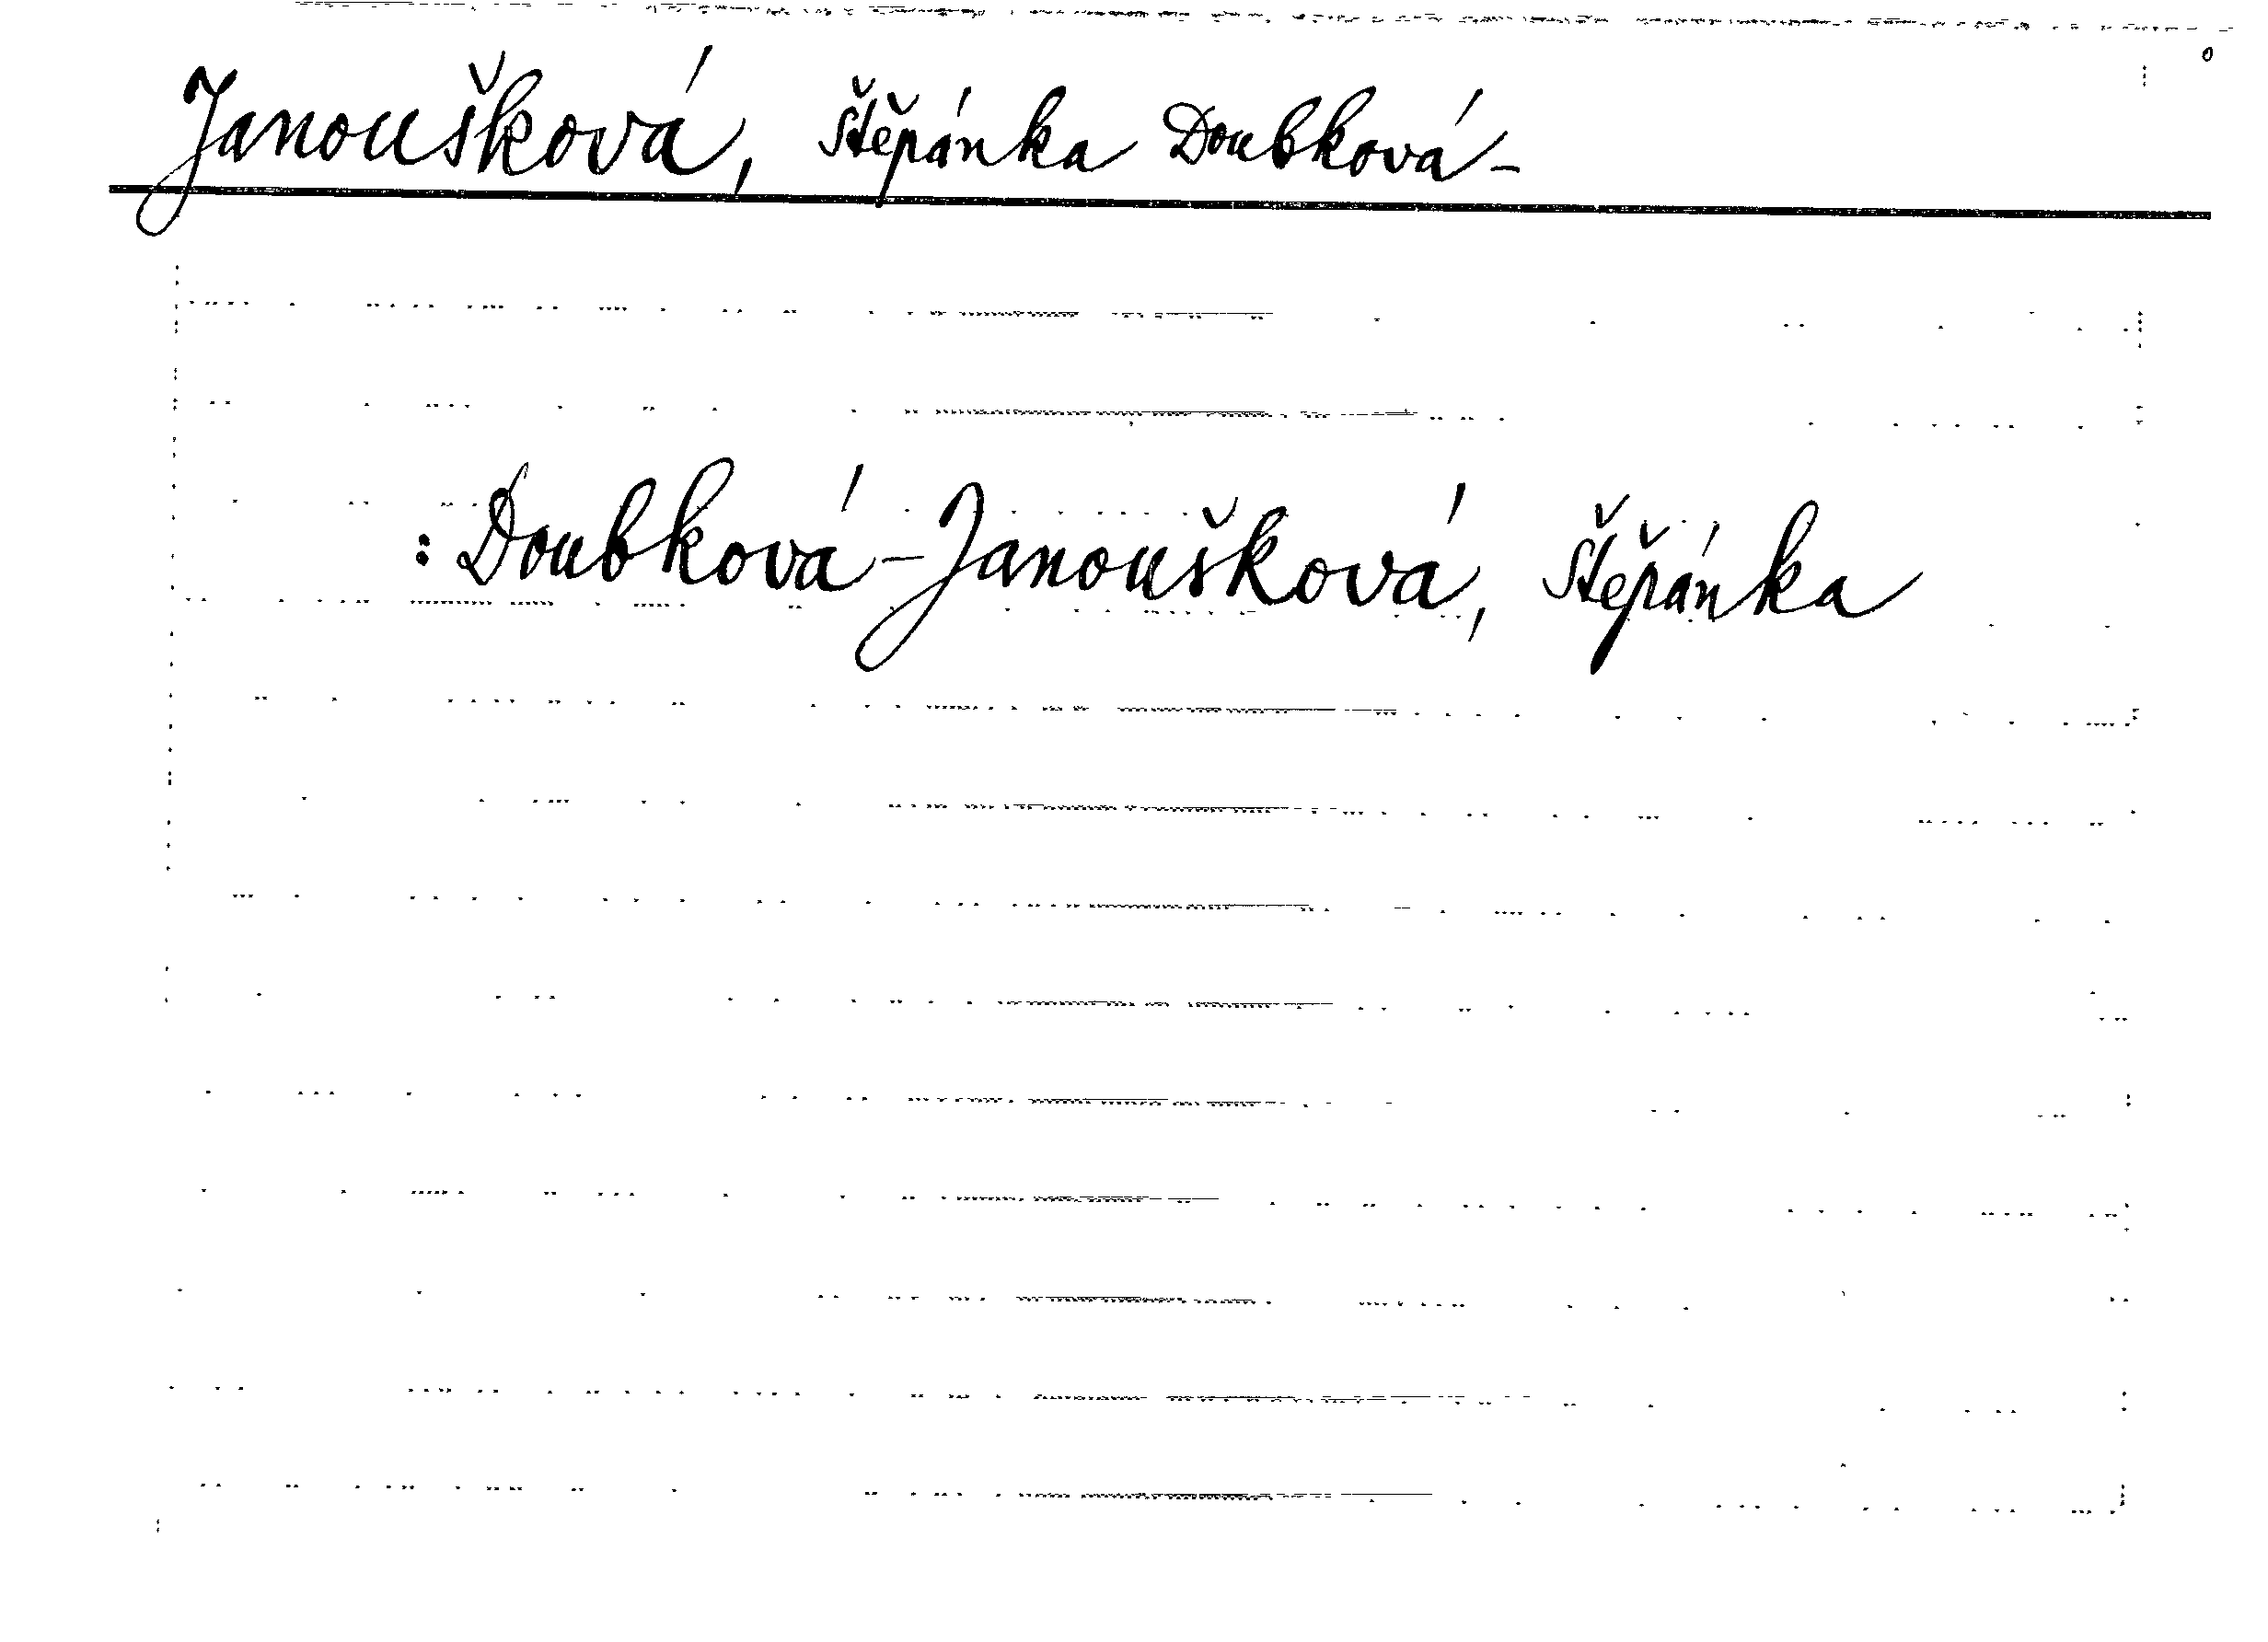 Janoušková, Štěpánka Doubková-
: Doubková-Janoušková, Štěpánka